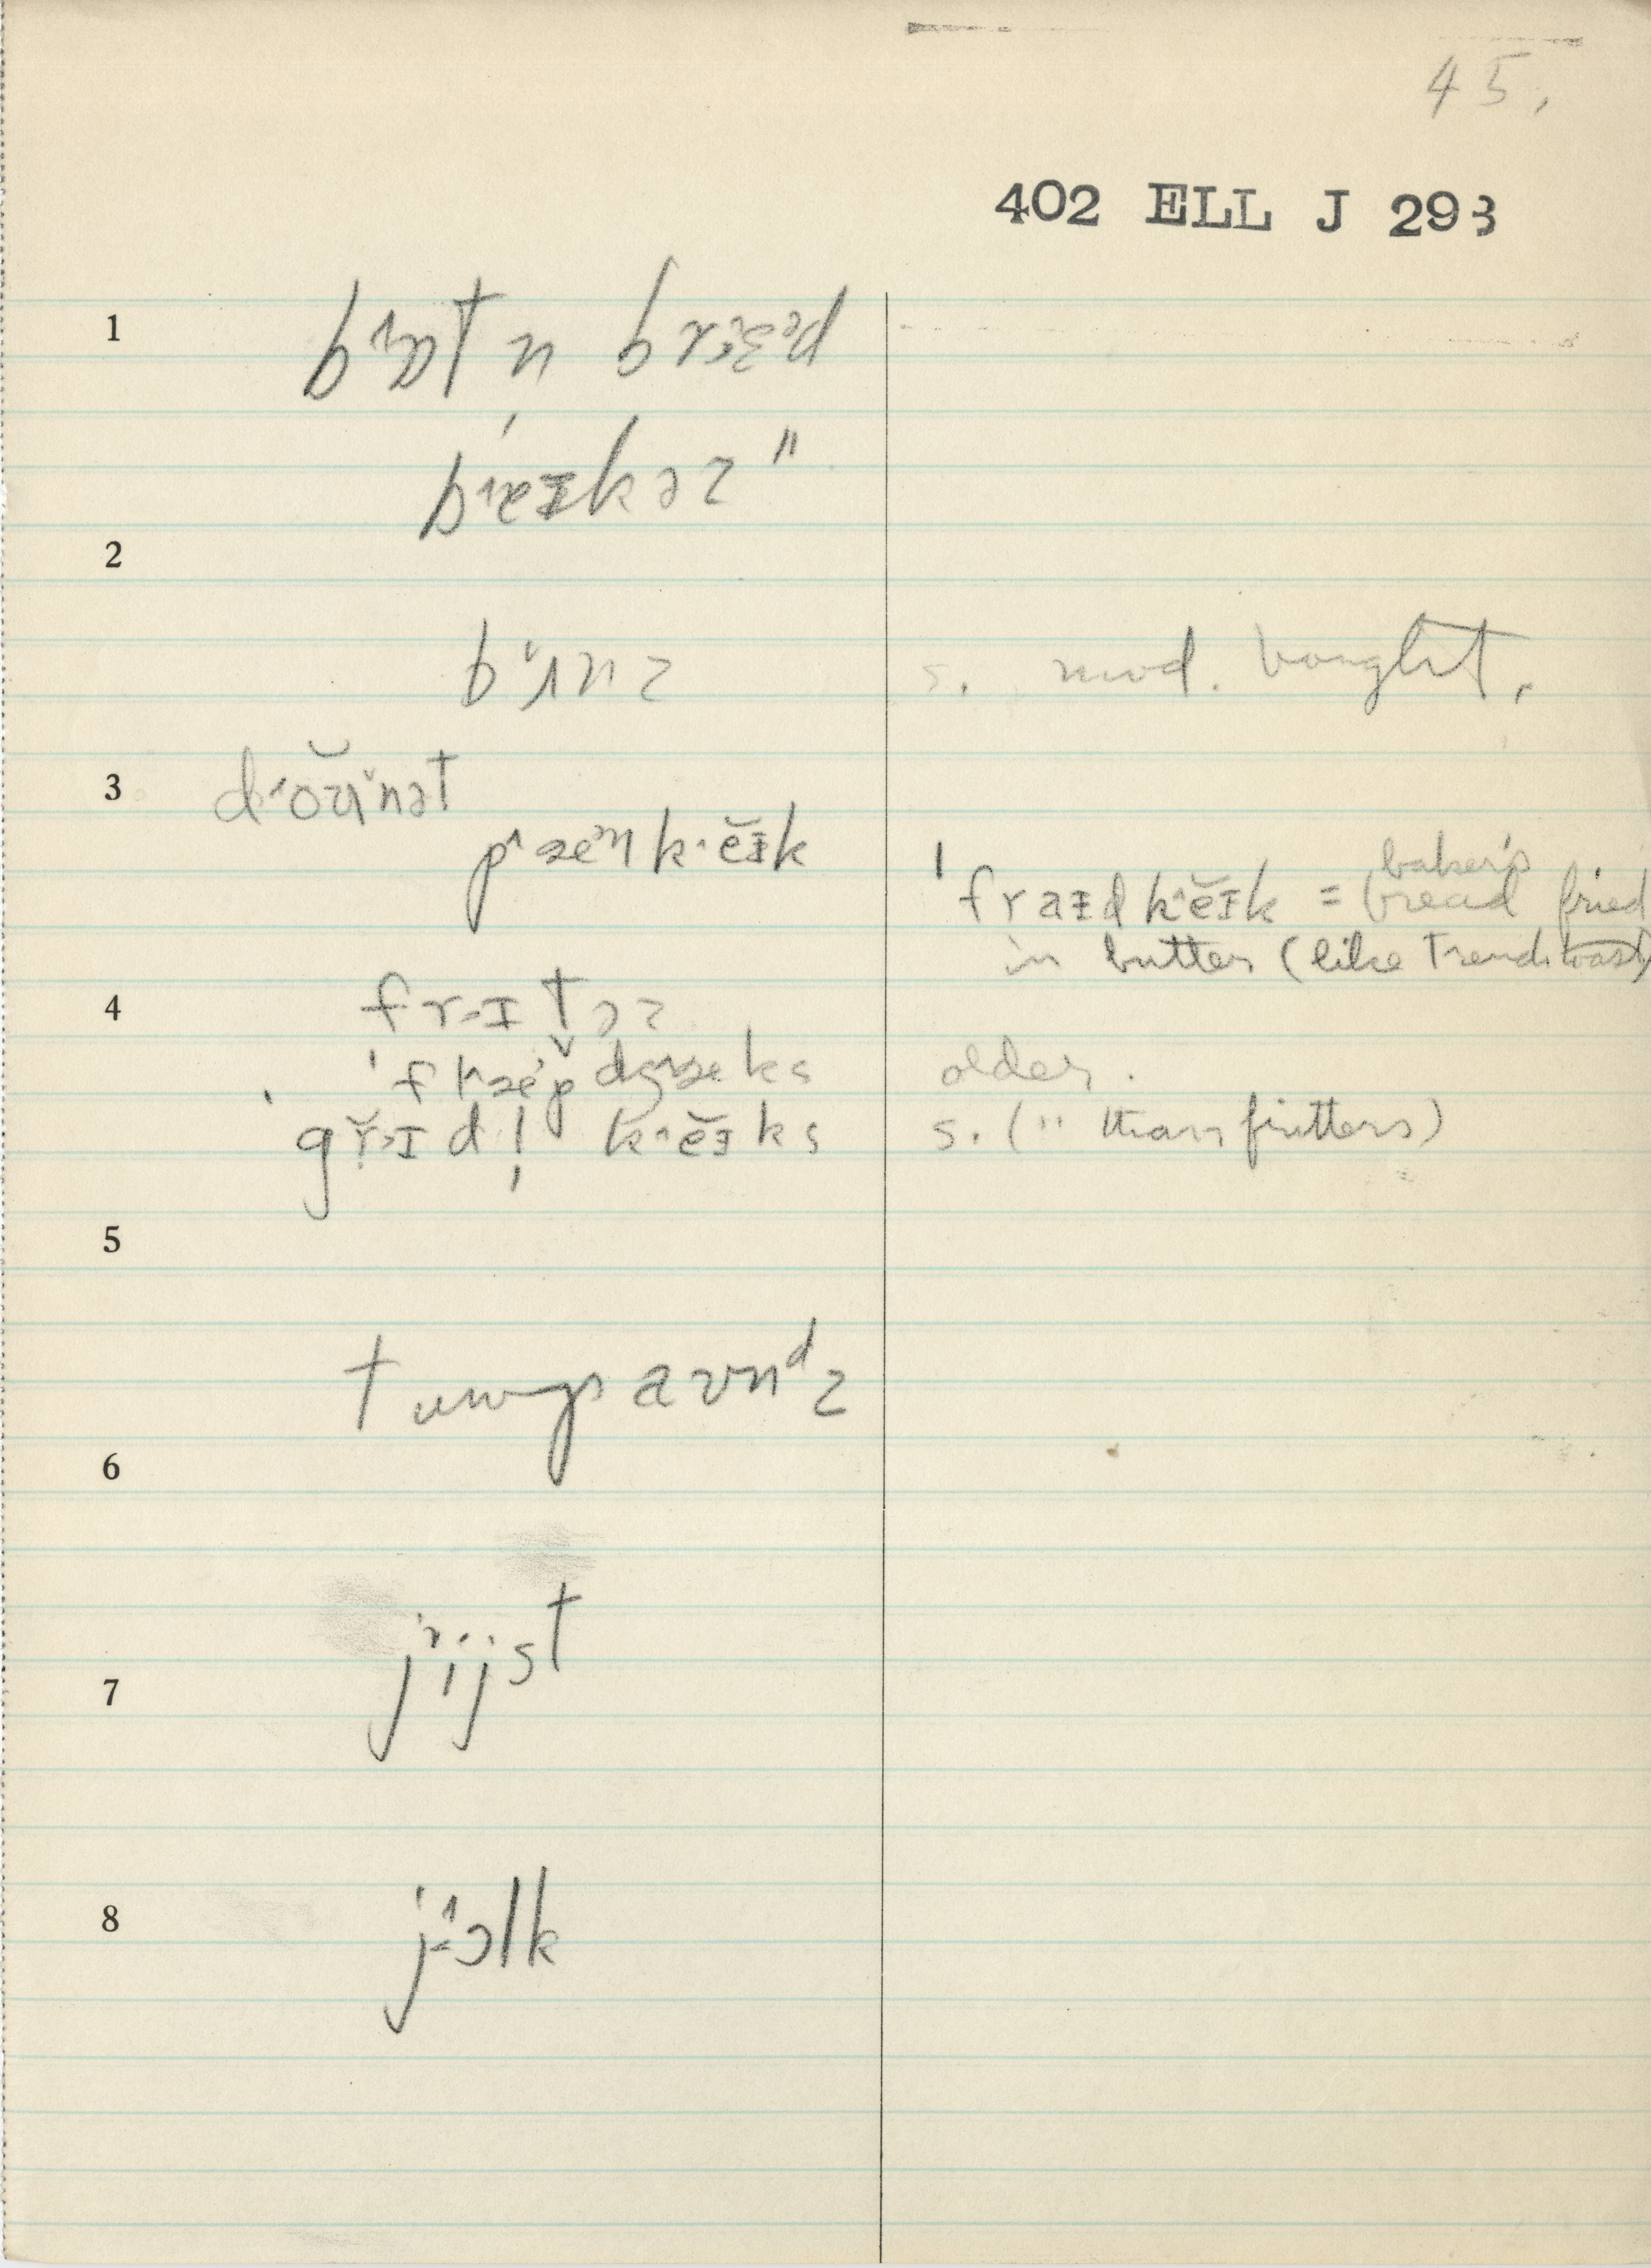 45.
402 ELL J 293
1
bɒt n brɛəd
bɛɪkəz "
2
bʌnz s. mod. bought.
3 doʊnət
pæn kĕɪk
baker's
ˈfraɪd kĕɪk = bread fried
in butter (like French toast)
4 frɪtəz
ˈflæpdʒæks older.
ˈgrɪdl̩ kĕɪks s. (" than fritters)
5
tu paʊnᵈz
6
jijst
7
8 jɔlk